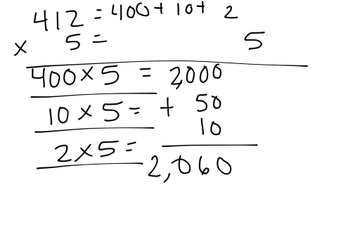 412 = 400 + 10 + 2
x 5 = 5
400 x 5 = 2,000
10 x 5 = + 50
10
2 x 5 =
2,060